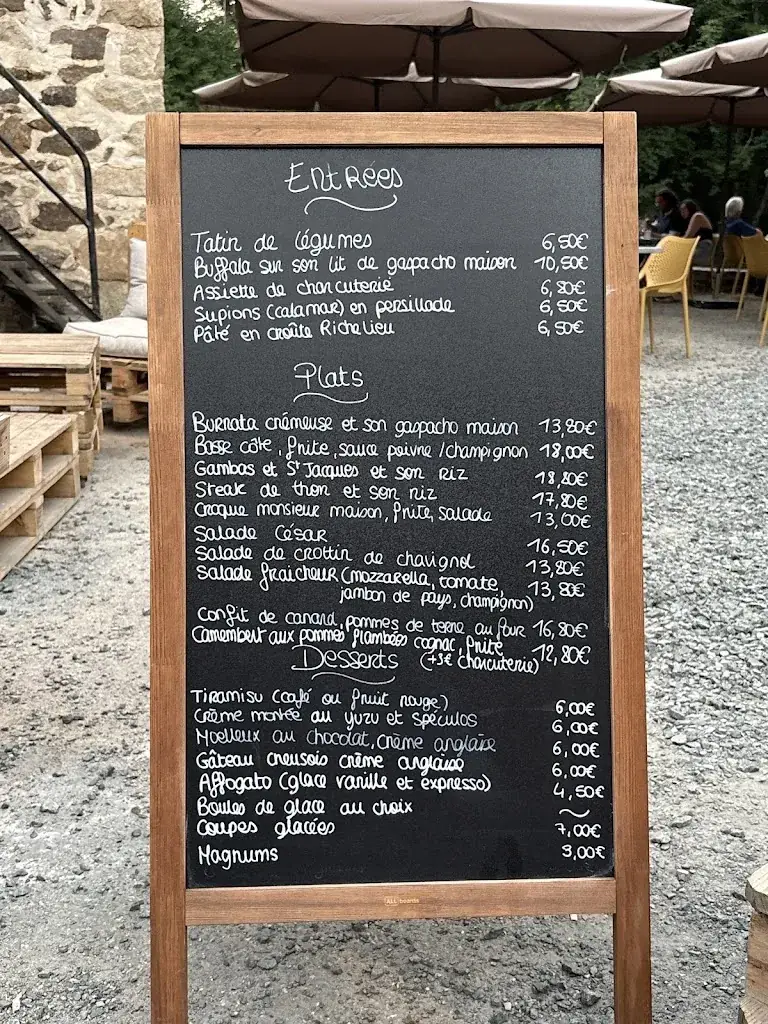 Entrées
Tatin de légumes 6,50€
Buffala sur son lit de gaspacho maison 10,50€
Assiette de charcuterie 6,80€
Supions (calamar) en persillade 6,50€
Pâté en croûte Richelieu 6,50€
Plats
Burrata crémeuse et son gaspacho maison 13,80€
Basse côte, frite, sauce poivre/champignon 18,00€
Gambas et St Jacques et son riz 18,80€
Steak de thon et son riz 17,80€
Croque monsieur maison, frite, salade 13,00€
Salade César 16,50€
Salade de crottin de chavignol 13,80€
Salade fraîcheur (mozzarella, tomate, 13,80€
jambon de pays, champignon)
Confit de canard, pommes de terre au four 16,80€
Camembert aux pommes flambées cognac, frite 12,80€
Desserts (+3€ charcuterie)
Tiramisu (café ou fruit rouge) 6,00€
Crème montée au yuzu et spéculos 6,00€
Moelleux au chocolat, crème anglaise 6,00€
Gâteau creusois crème anglaise 6,00€
Affogato (glace vanille et expresso) 4,50€
Boules de glace au choix ~
Coupes glacées 7,00€
Magnums 3,00€
ALL boards